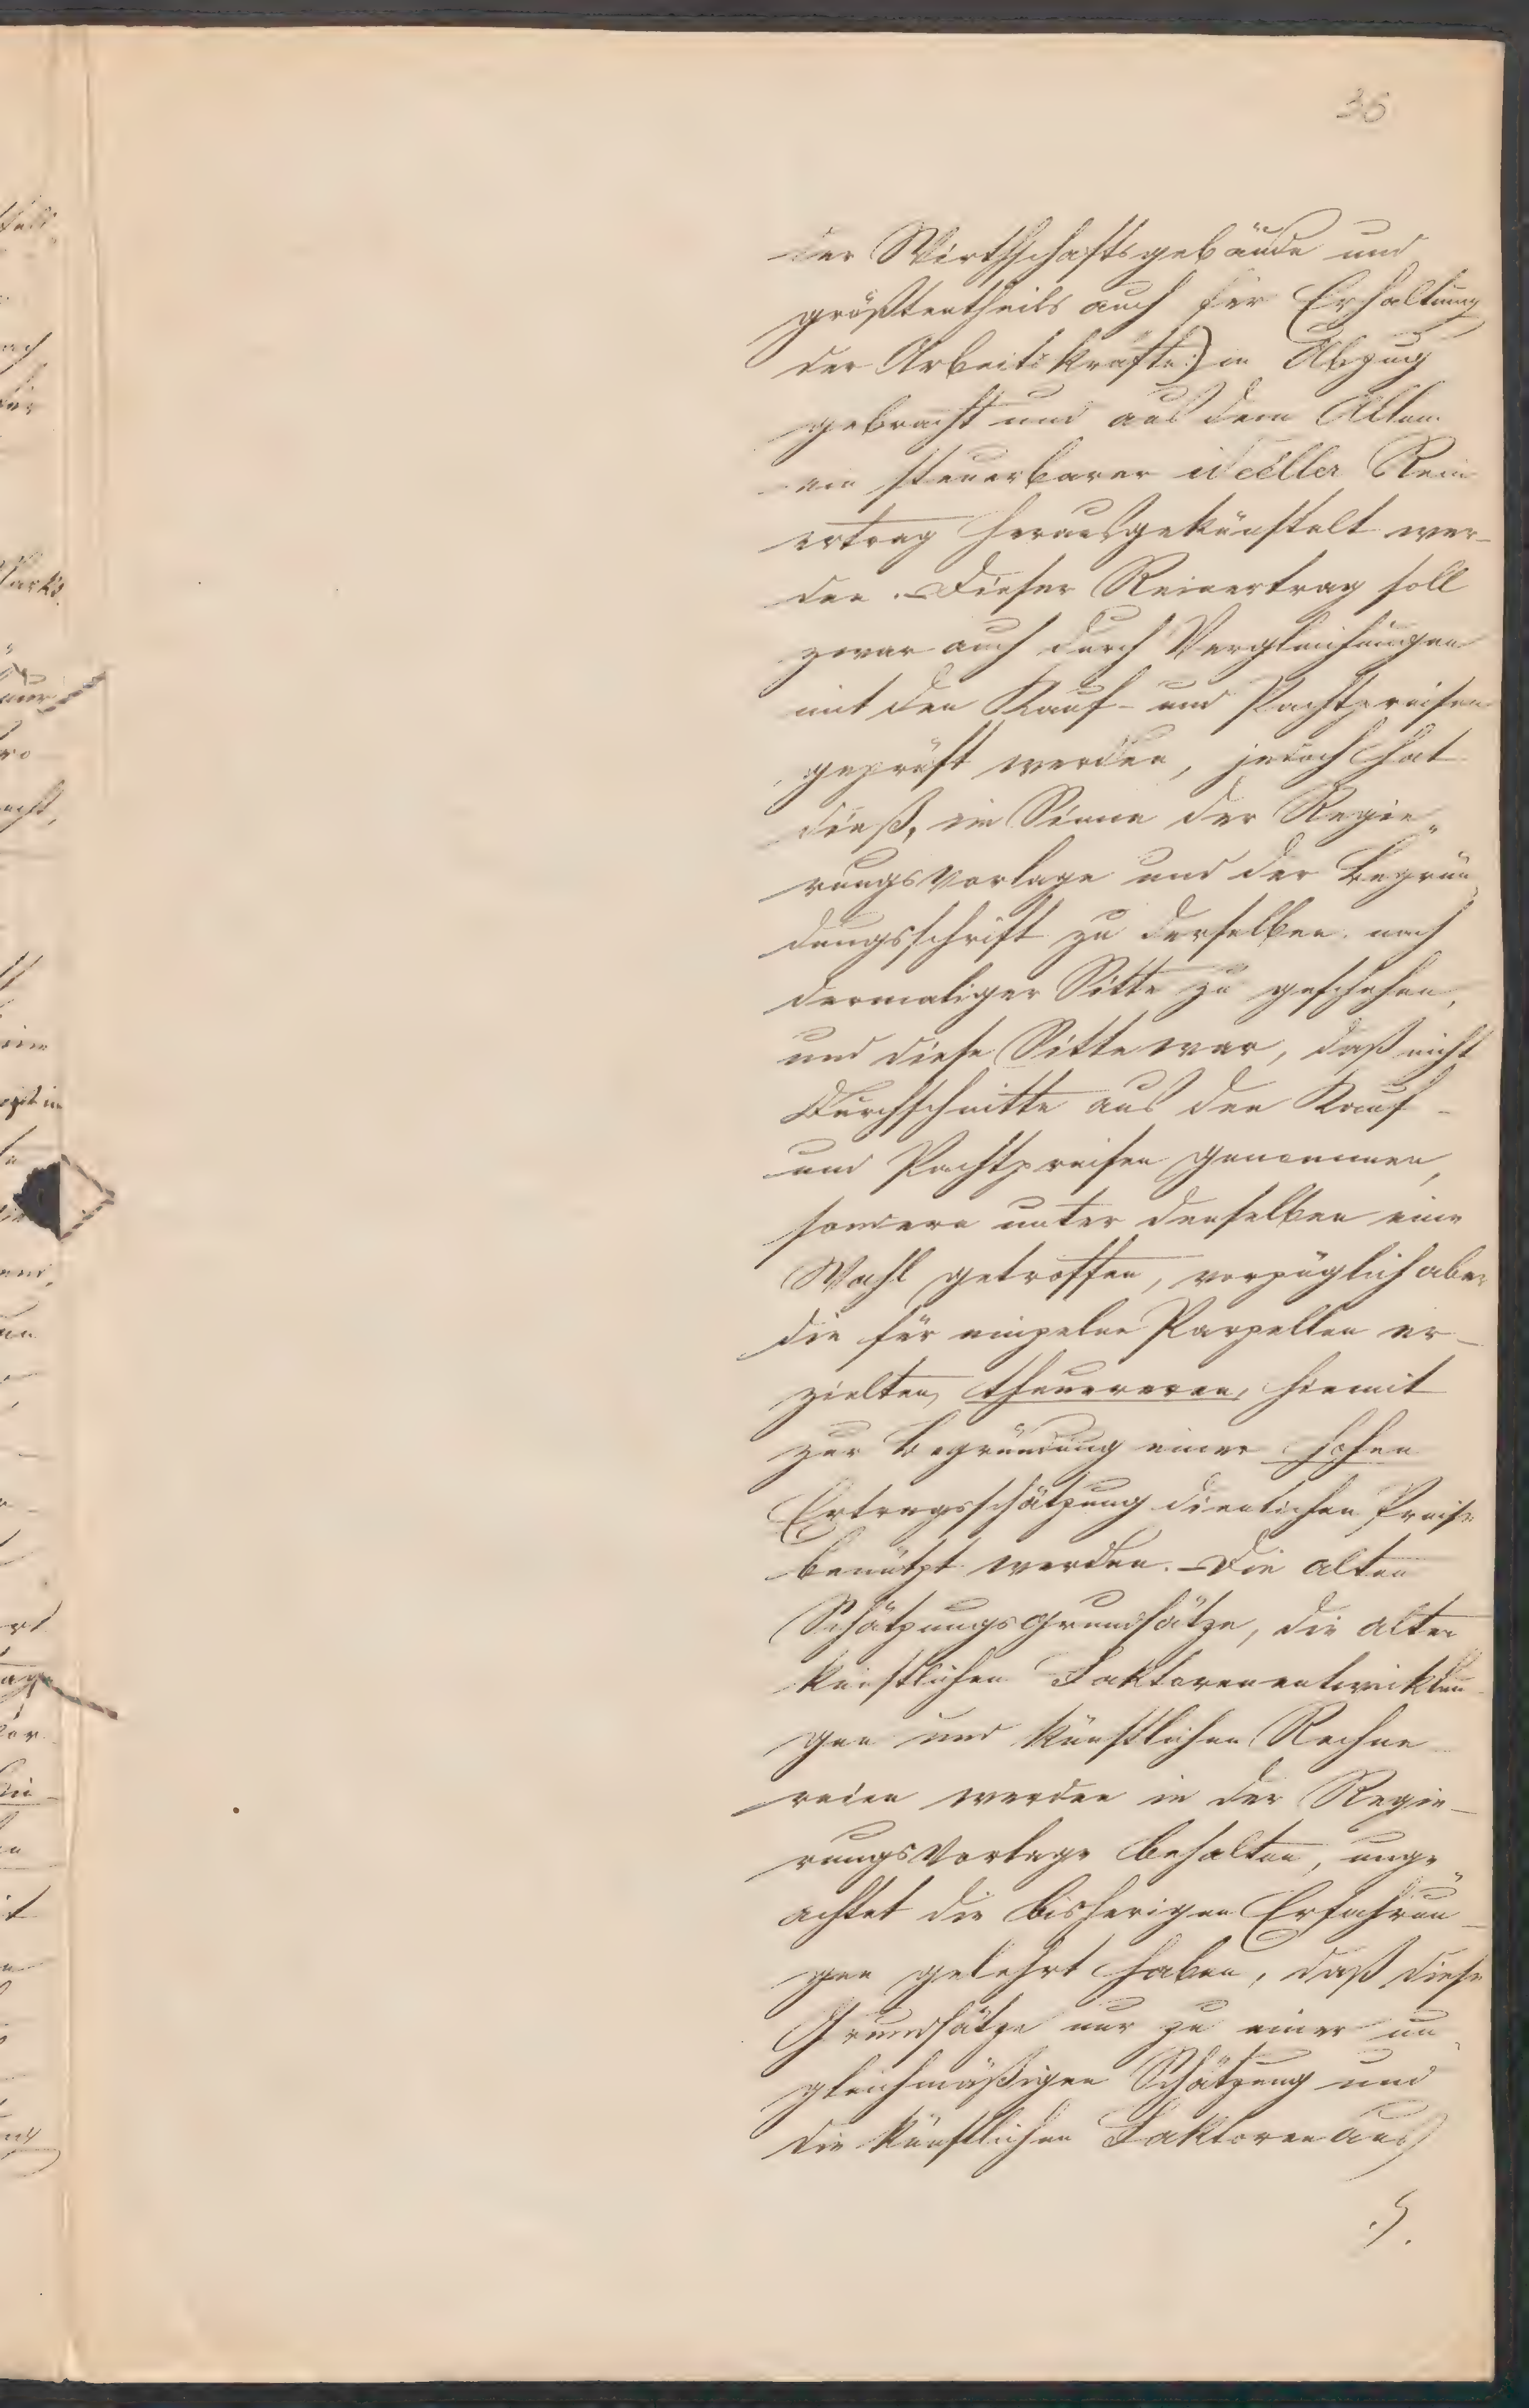 36
der Wirthschaftsgebäude und
größtentheils auch für Erhaltung
der Arbeitskräfte:) in Abzug
gebracht und aus dem Allem
ein steuerbarer ideeller Rein
ertrag herausgekünstelt wer-
den. Dieser Reinertrag soll
zwar auch durch Vergleichungen
mit den Kauf- und Pachtpreisen
geprüft werden, jedoch hat
dieß, im Sinne der Regie„
rungsvorlage und der Begrün„
dungsschrift zu derselben nach
dermaliger Sitte zu geschehen,
und diese Sitte war, daß nicht
Durchschnitte aus den Kauf-
und Pachtpreisen genommen,
sondern unter denselben eine
Wahl getroffen, vorzüglich aber
die für einzelne Parzellen er-
zielten, theuereren, hiemit
zur Begründung einer hohen
Ertragsschätzung dienlichen Preise
benützt werden. Die alten
Schätzungsgrundsätze, die alten
künstlichen Faktorenentwicklun
gen und künstlichen Rechne
reien werden in der Regie-
rungsvorlage behalten, unge„
achtet die bisherigen Erfahrun-
gen gelehrt haben, daß diese
Grundsätze nur zu einer un„
gleichmäßigen Schätzung und
die künstlichen Faktoren aus